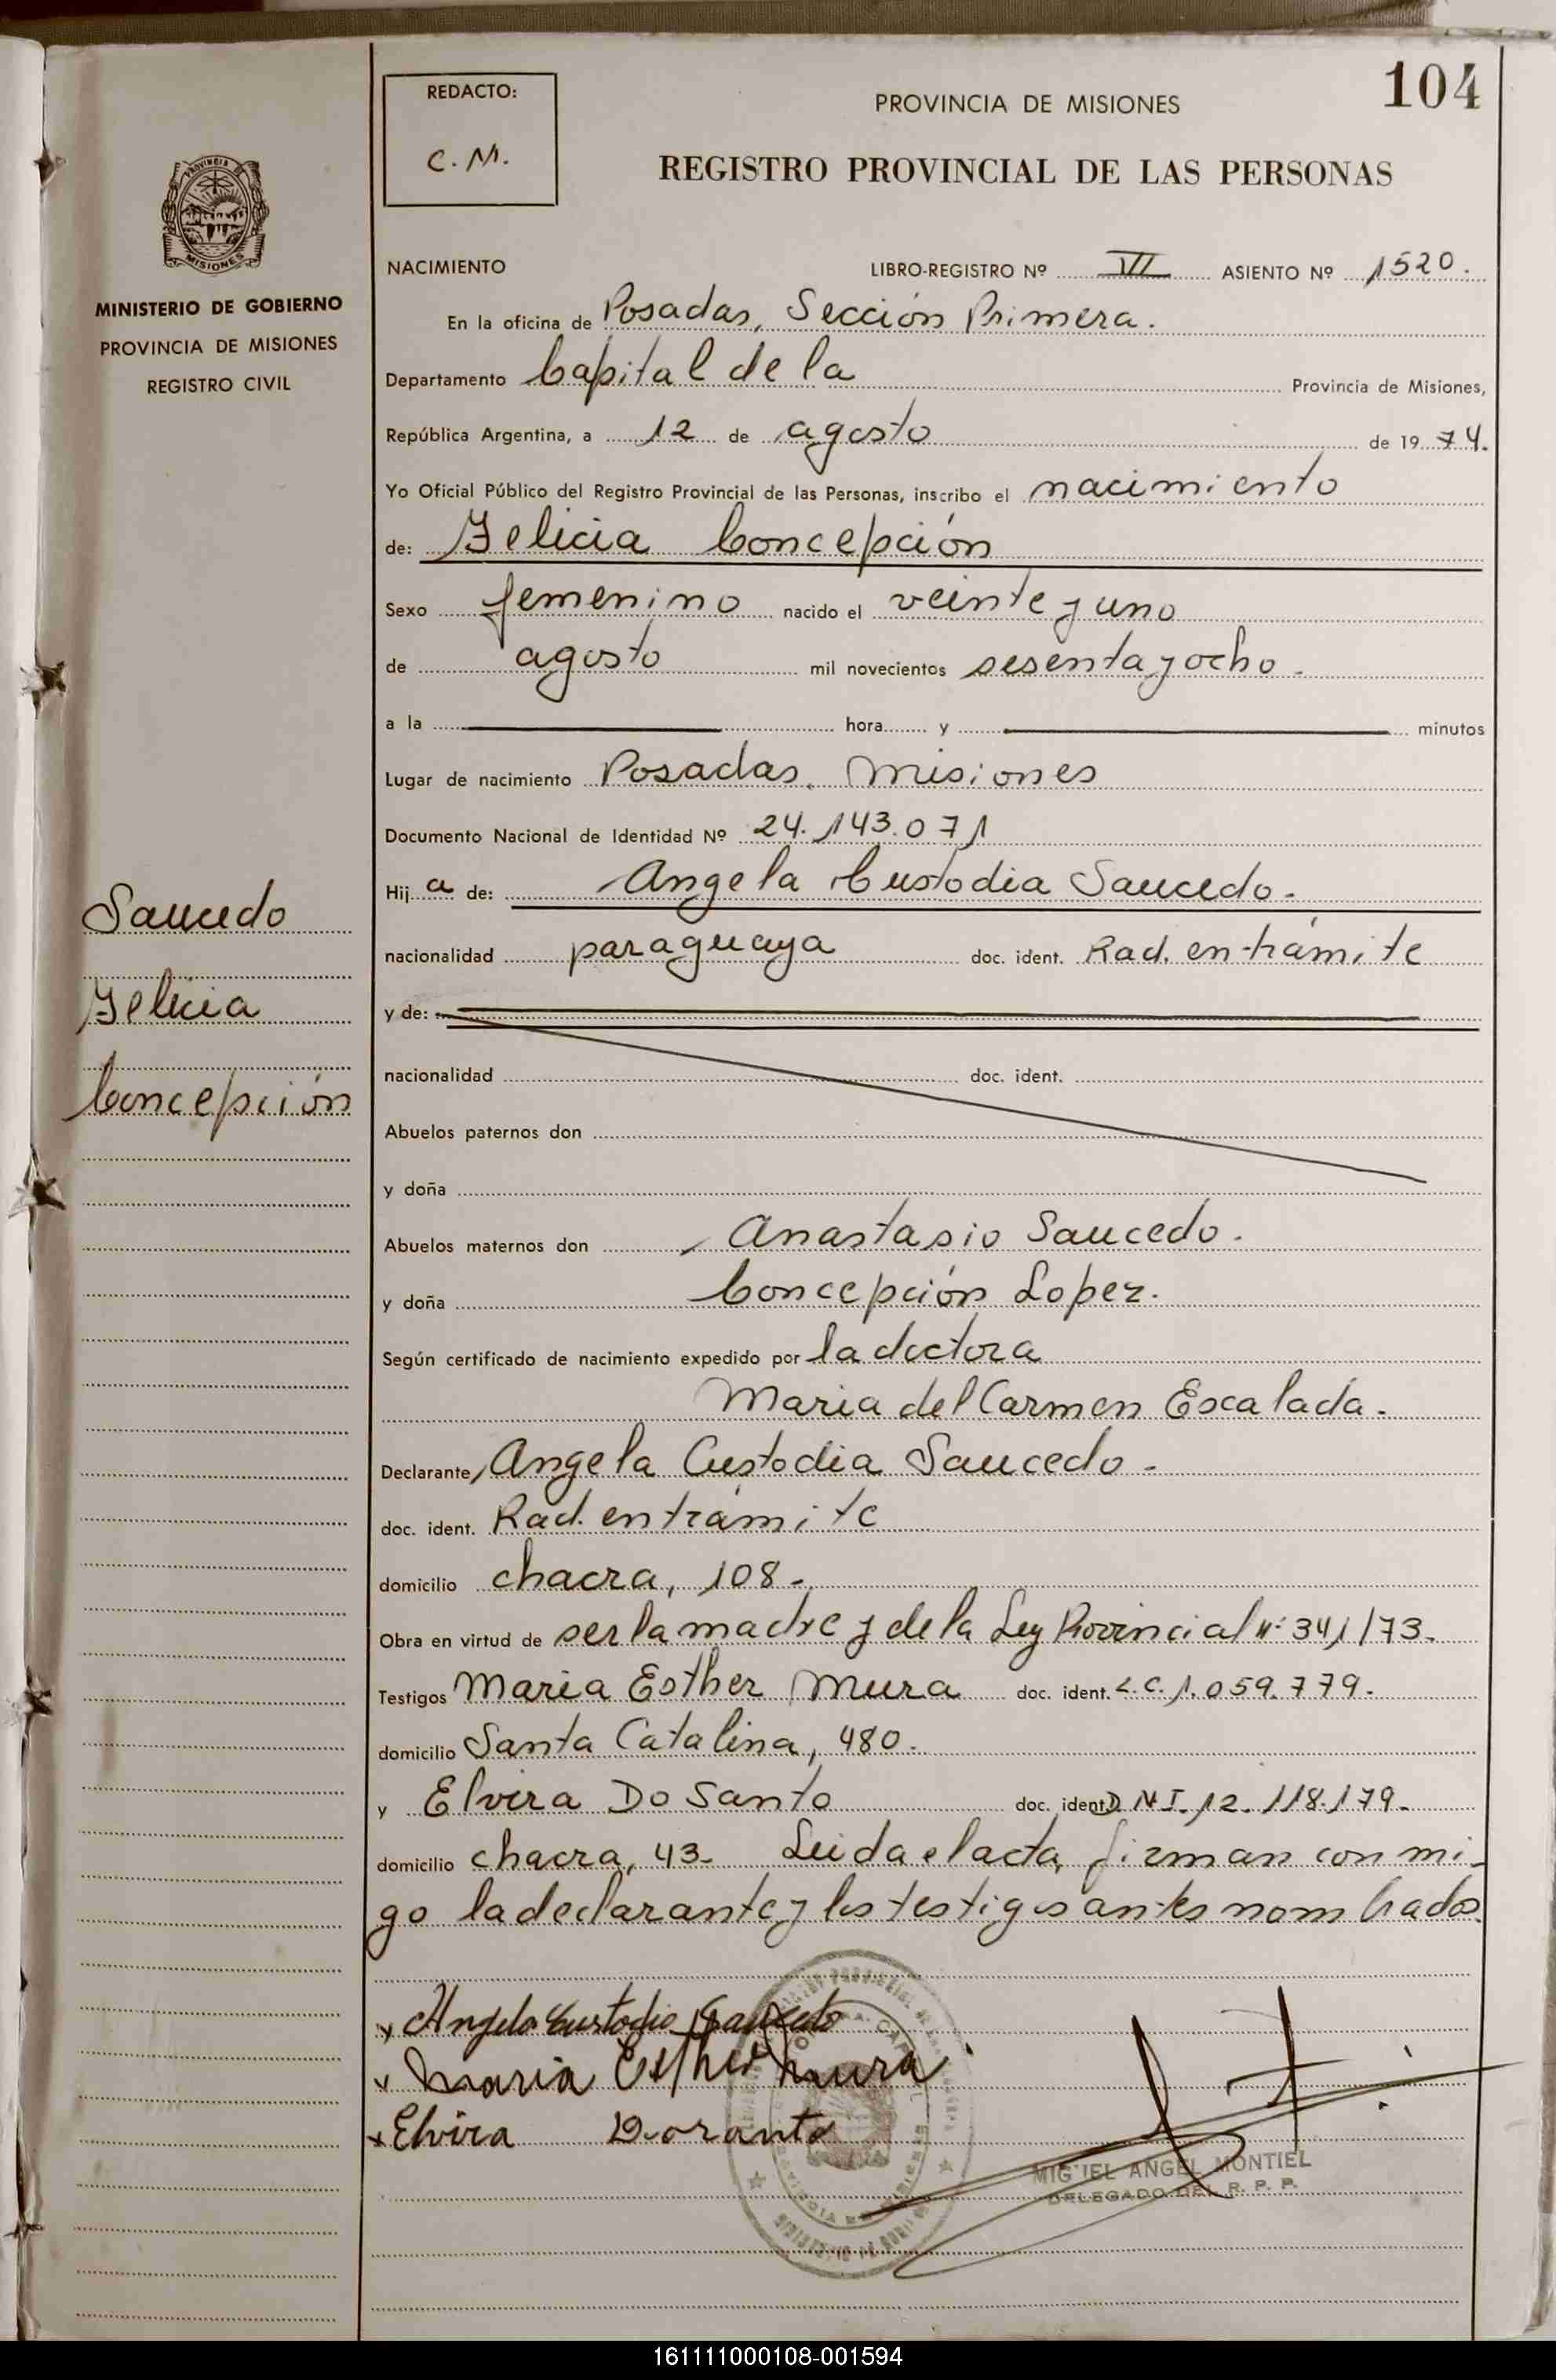 104
REDACTO:
C. M.
PROVINCIA DE MISIONES
REGISTRO PROVINCIAL DE LAS PERSONAS
PROVINCIA
MISIONES
MINISTERIO DE GOBIERNO
PROVINCIA DE MISIONES
REGISTRO CIVIL
NACIMIENTO LIBRO-REGISTRO Nº VII ASIENTO Nº 1520.
En la oficina de Posadas, Sección Primera.
Departamento Capital de la Provincia de Misiones,
República Argentina, a 12 de agosto de 19 74.
Yo Oficial Público del Registro Provincial de las Personas, inscribo el nacimiento
de: Felicia Concepción
Sexo femenino nacido el veinte y uno
de agosto mil novecientos sesenta y ocho.
a la hora y minutos
Lugar de nacimiento Posadas, Misiones
Documento Nacional de Identidad Nº 24.143.071
Hij a de: Angela Custodia Saucedo.
nacionalidad paraguaya doc. ident. Rad. en trámite
y de:
nacionalidad doc. ident.
Abuelos paternos don
y doña
Abuelos maternos don Anastasio Saucedo.
y doña Concepción Lopez.
Según certificado de nacimiento expedido por la doctora
Maria del Carmen Escalada.
Declarante, Angela Custodia Saucedo.
doc. ident. Rad. en trámite
domicilio chacra, 108.
Obra en virtud de ser la madre y de la Ley Provincial Nº 341/73.
Testigos Maria Esther Mura doc. ident. L.C. 1.059.779.
domicilio Santa Catalina, 480.
y Elvira Do Santo doc. ident. D.N.I. 12.118.179.
domicilio chacra, 43. Leida el acta, firman conmi-
go la declarante y los testigos antes nombrados.
Saucedo
Felicia
Concepción
x Angela Custodia Saucedo
x Maria Esther Mura
x Elvira Dosanto
MIGUEL ANGEL MONTIEL
DELEGADO DEL R. P. P.
161111000108-001594